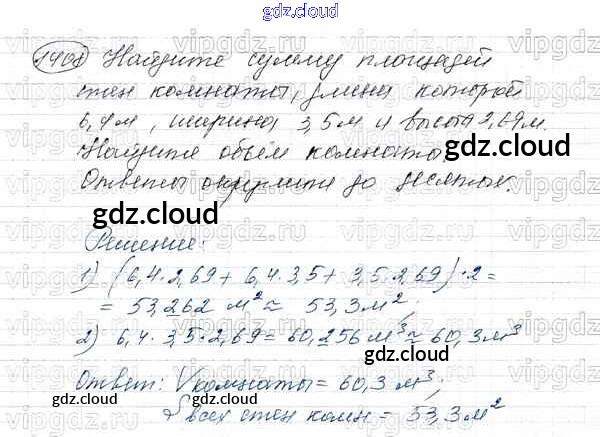 gdz.cloud
1408 Найдите сумму площадей
стен комнаты, длина которой
6,4м, ширина 3,5м и высота 2,69м.
Найдите объём комнаты
Ответы округлите до десятых.
gdz.cloud
Решение:
1) (6,4·2,69 + 6,4·3,5 + 3,5·2,69)·2=
= 53,262 м² ≈ 53,3м²;
2) 6,4·3,5·2,69 = 60,256 м³ ≈ 60,3м³
gdz.cloud
Ответ: Vкомнаты = 60,3 м³;
Sвсех стен комн = 53,3м²
gdz.cloud gdz.cloud